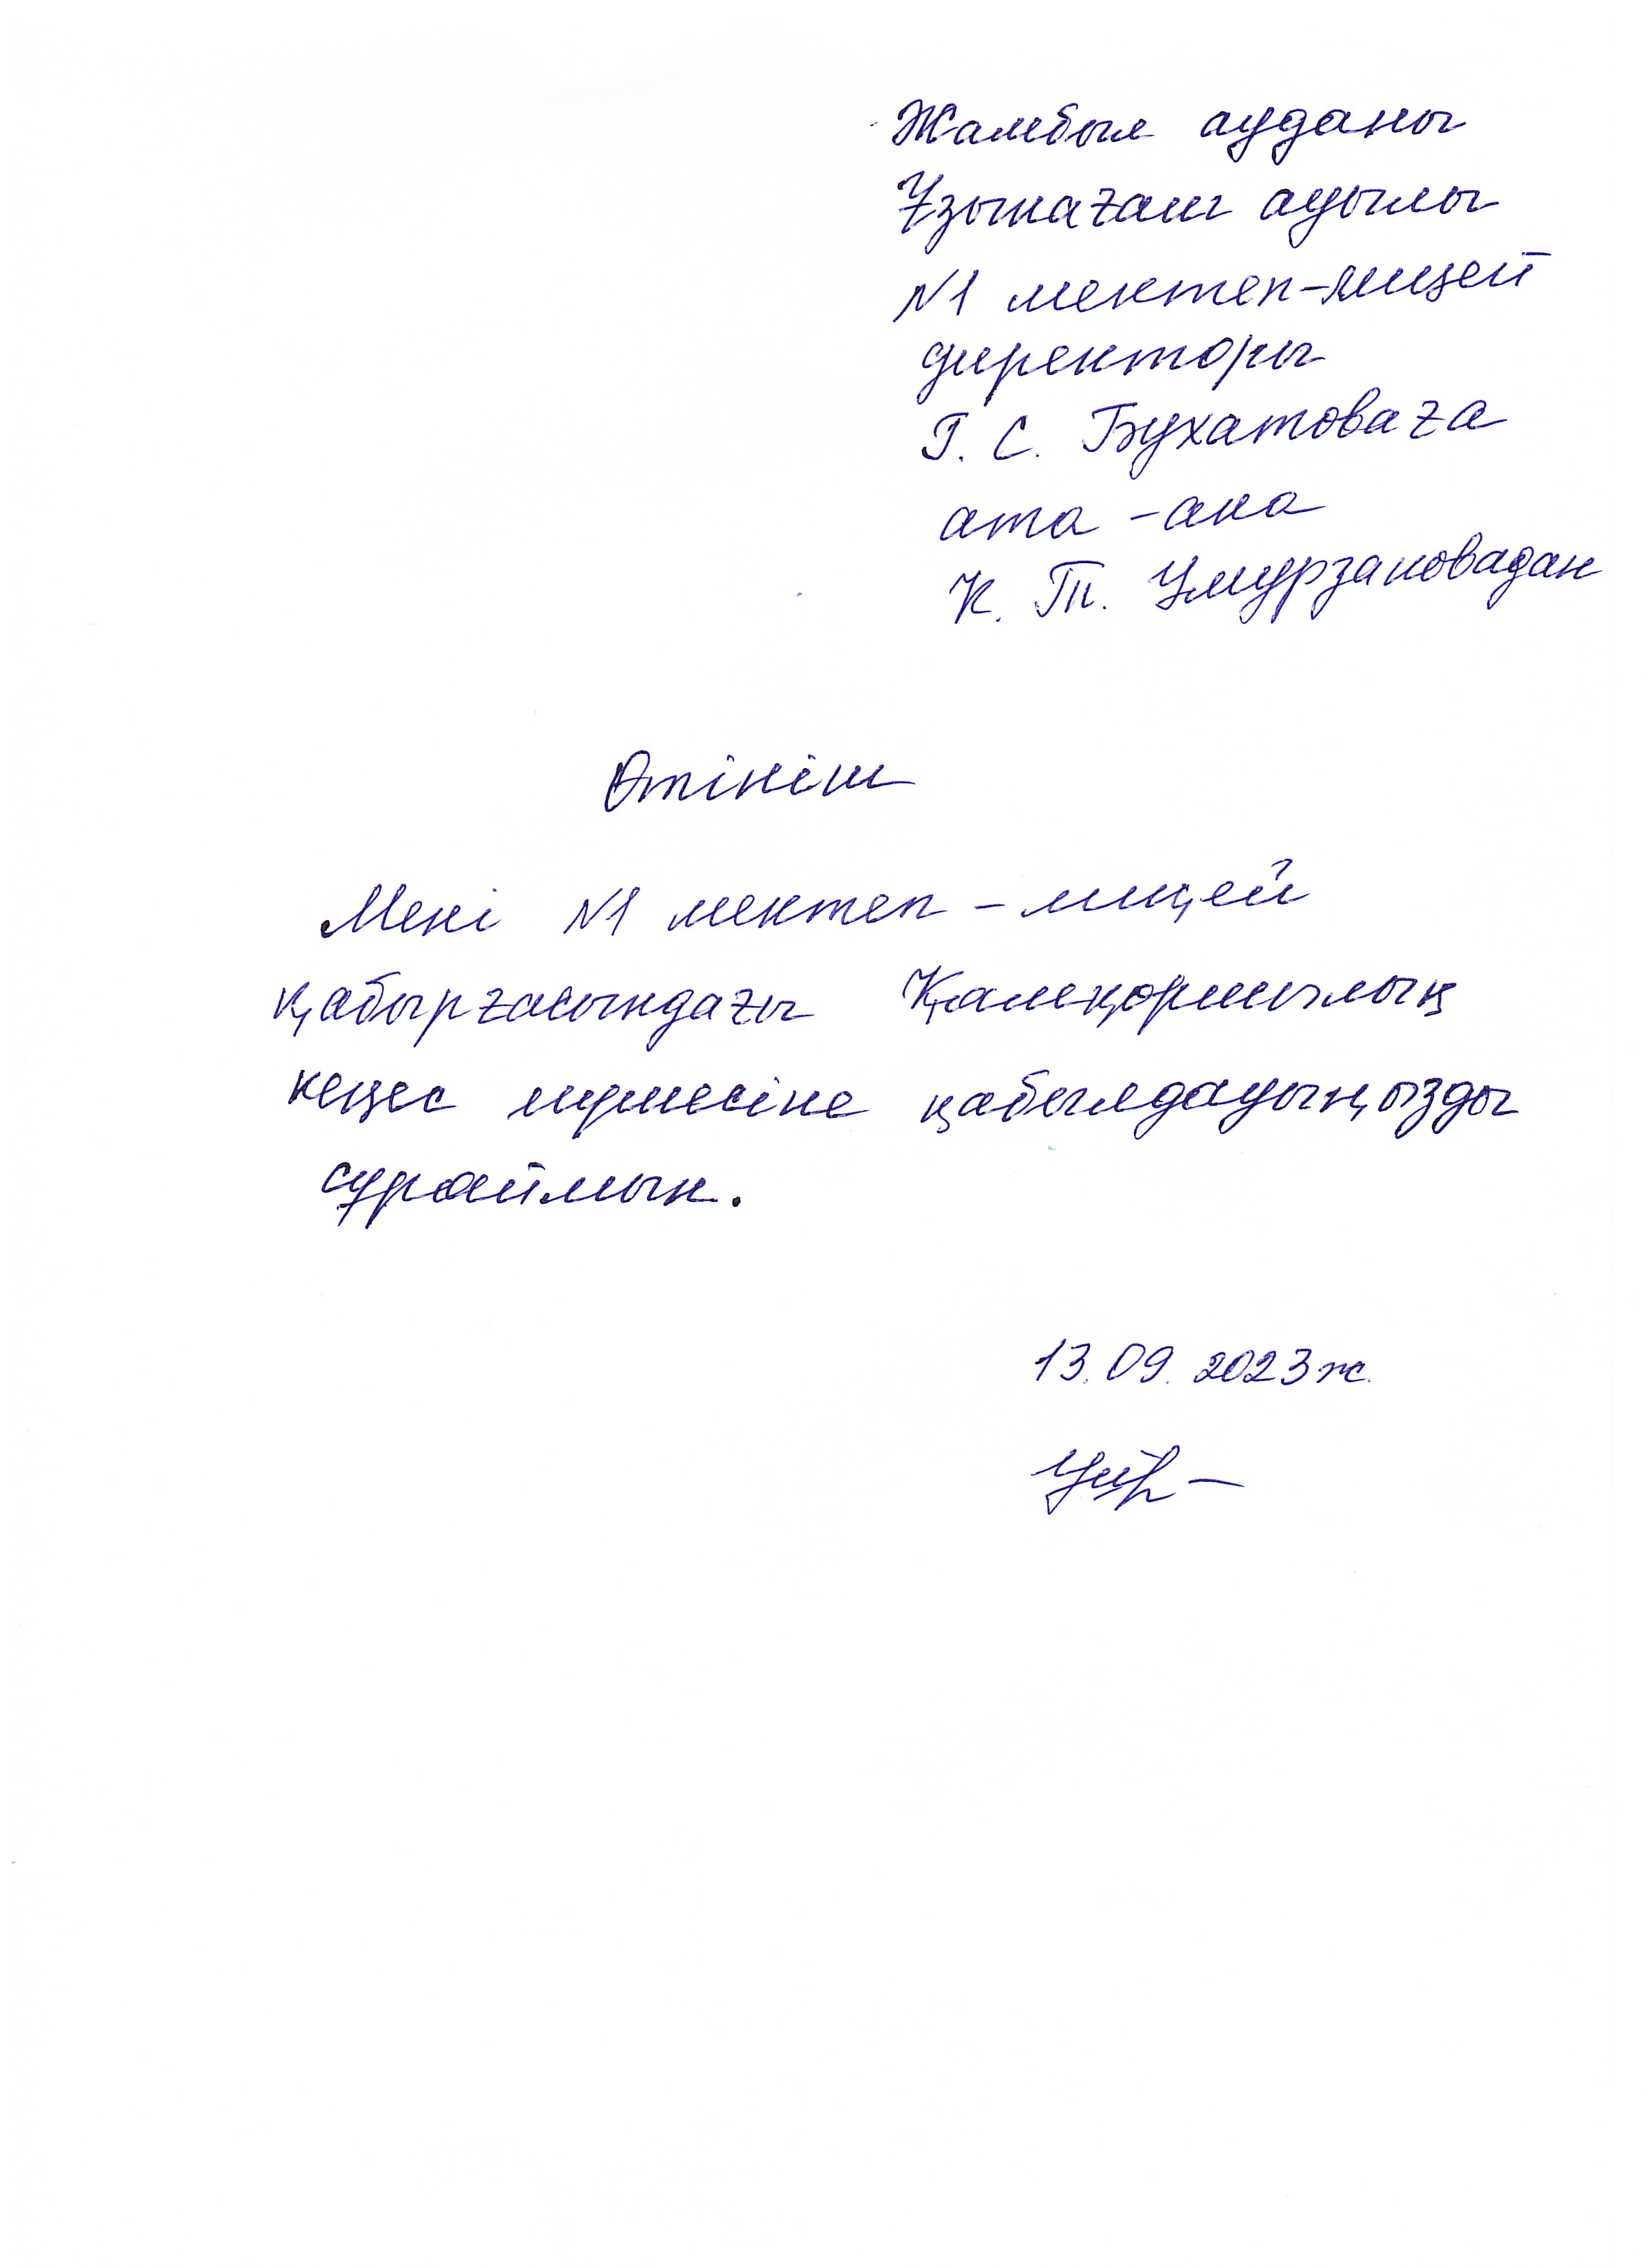 Жамбыл ауданы
Ұзынағаш ауылы
№1 мектеп-лицей
директоры
Г. С. Бухатоваға
ата - ана
К. Т. Умурзаковадан
Өтініш
Мені №1 мектеп - лицей
қабырғасындағы Қамқоршылық
кеңес мүшесіне қабылдауыңызды
сұраймын.
13.09.2023ж.